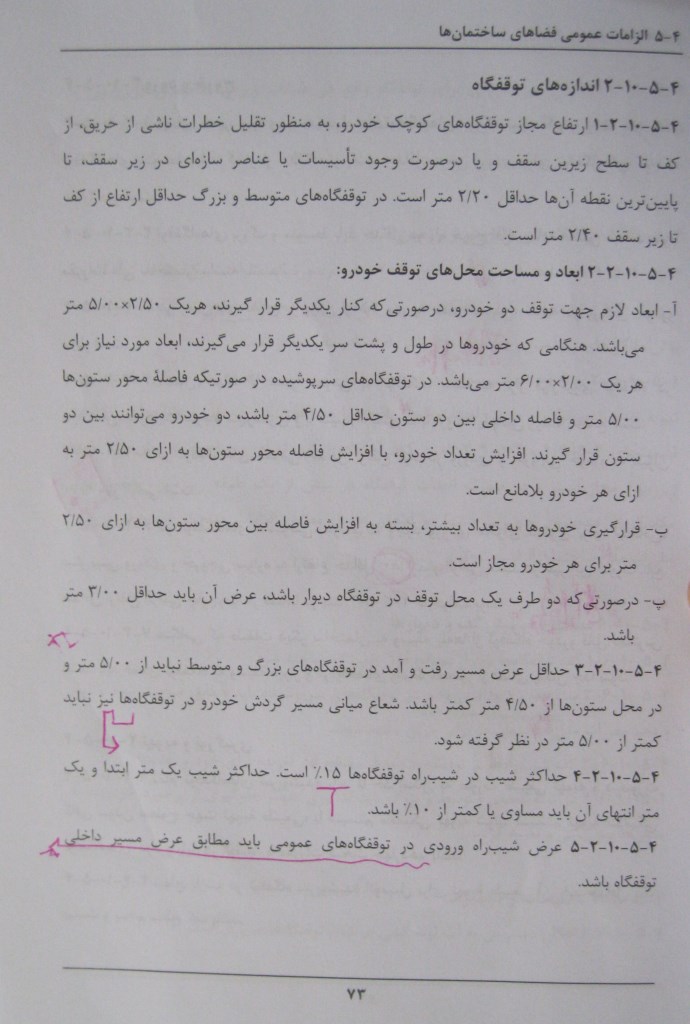 ۴-۵ الزامات عمومی فضاهای ساختمان‌ها
۴-۵-۱۰-۲ اندازه‌های توقفگاه
۴-۵-۱۰-۲-۱ ارتفاع مجاز توقفگاه‌های کوچک خودرو، به منظور تقلیل خطرات ناشی از حریق، از
کف تا سطح زیرین سقف و یا درصورت وجود تأسیسات یا عناصر سازه‌ای در زیر سقف، تا
پایین‌ترین نقطه آن‌ها حداقل ۲/۲۰ متر است. در توقفگاه‌های متوسط و بزرگ حداقل ارتفاع از کف
تا زیر سقف ۲/۴۰ متر است.
۴-۵-۱۰-۲-۲ ابعاد و مساحت محل‌های توقف خودرو:
آ- ابعاد لازم جهت توقف دو خودرو، درصورتی‌که کنار یکدیگر قرار گیرند، هریک ۲/۵۰×۵/۰۰ متر
می‌باشد. هنگامی که خودروها در طول و پشت سر یکدیگر قرار می‌گیرند، ابعاد مورد نیاز برای
هر یک ۲/۰۰×۶/۰۰ متر می‌باشد. در توقفگاه‌های سرپوشیده در صورتیکه فاصلهٔ محور ستون‌ها
۵/۰۰ متر و فاصله داخلی بین دو ستون حداقل ۴/۵۰ متر باشد، دو خودرو می‌توانند بین دو
ستون قرار گیرند. افزایش تعداد خودرو، با افزایش فاصله محور ستون‌ها به ازای ۲/۵۰ متر به
ازای هر خودرو بلامانع است.
ب- قرارگیری خودروها به تعداد بیشتر، بسته به افزایش فاصله بین محور ستون‌ها به ازای ۲/۵۰
متر برای هر خودرو مجاز است.
پ- درصورتی‌که دو طرف یک محل توقف در توقفگاه دیوار باشد، عرض آن باید حداقل ۳/۰۰ متر
باشد.
۴-۵-۱۰-۲-۳ حداقل عرض مسیر رفت و آمد در توقفگاه‌های بزرگ و متوسط نباید از ۵/۰۰ متر و
در محل ستون‌ها از ۴/۵۰ متر کمتر باشد. شعاع میانی مسیر گردش خودرو در توقفگاه‌ها نیز نباید
کمتر از ۵/۰۰ متر در نظر گرفته شود.
۴-۵-۱۰-۲-۴ حداکثر شیب در شیب‌راه توقفگاه‌ها ۱۵٪ است. حداکثر شیب یک متر ابتدا و یک
متر انتهای آن باید مساوی یا کمتر از ۱۰٪ باشد.
۴-۵-۱۰-۲-۵ عرض شیب‌راه ورودی در توقفگاه‌های عمومی باید مطابق عرض مسیر داخلی
توقفگاه باشد.
۷۳